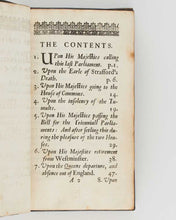 THE CONTENTS.
1. Upon His Majesties calling
this last Parliament. p.1.
2. Upon the Earle of Strafford's
Death. p.6.
3. Upon His Majesties going to the
House of Commons. 12.
4. Upon the insolency of the Tu-
mults. 18.
5. Upon His Majesties passing the
Bill for the Trienniall Parlia-
ments: And after setling this du-
ring the pleasure of the two Hou-
ses. 27.
6. Upon His Majesties retirement
from Westminster. 38.
7. Upon the Queens departure, and
absence out of England. 47.
A 2 8. Upon